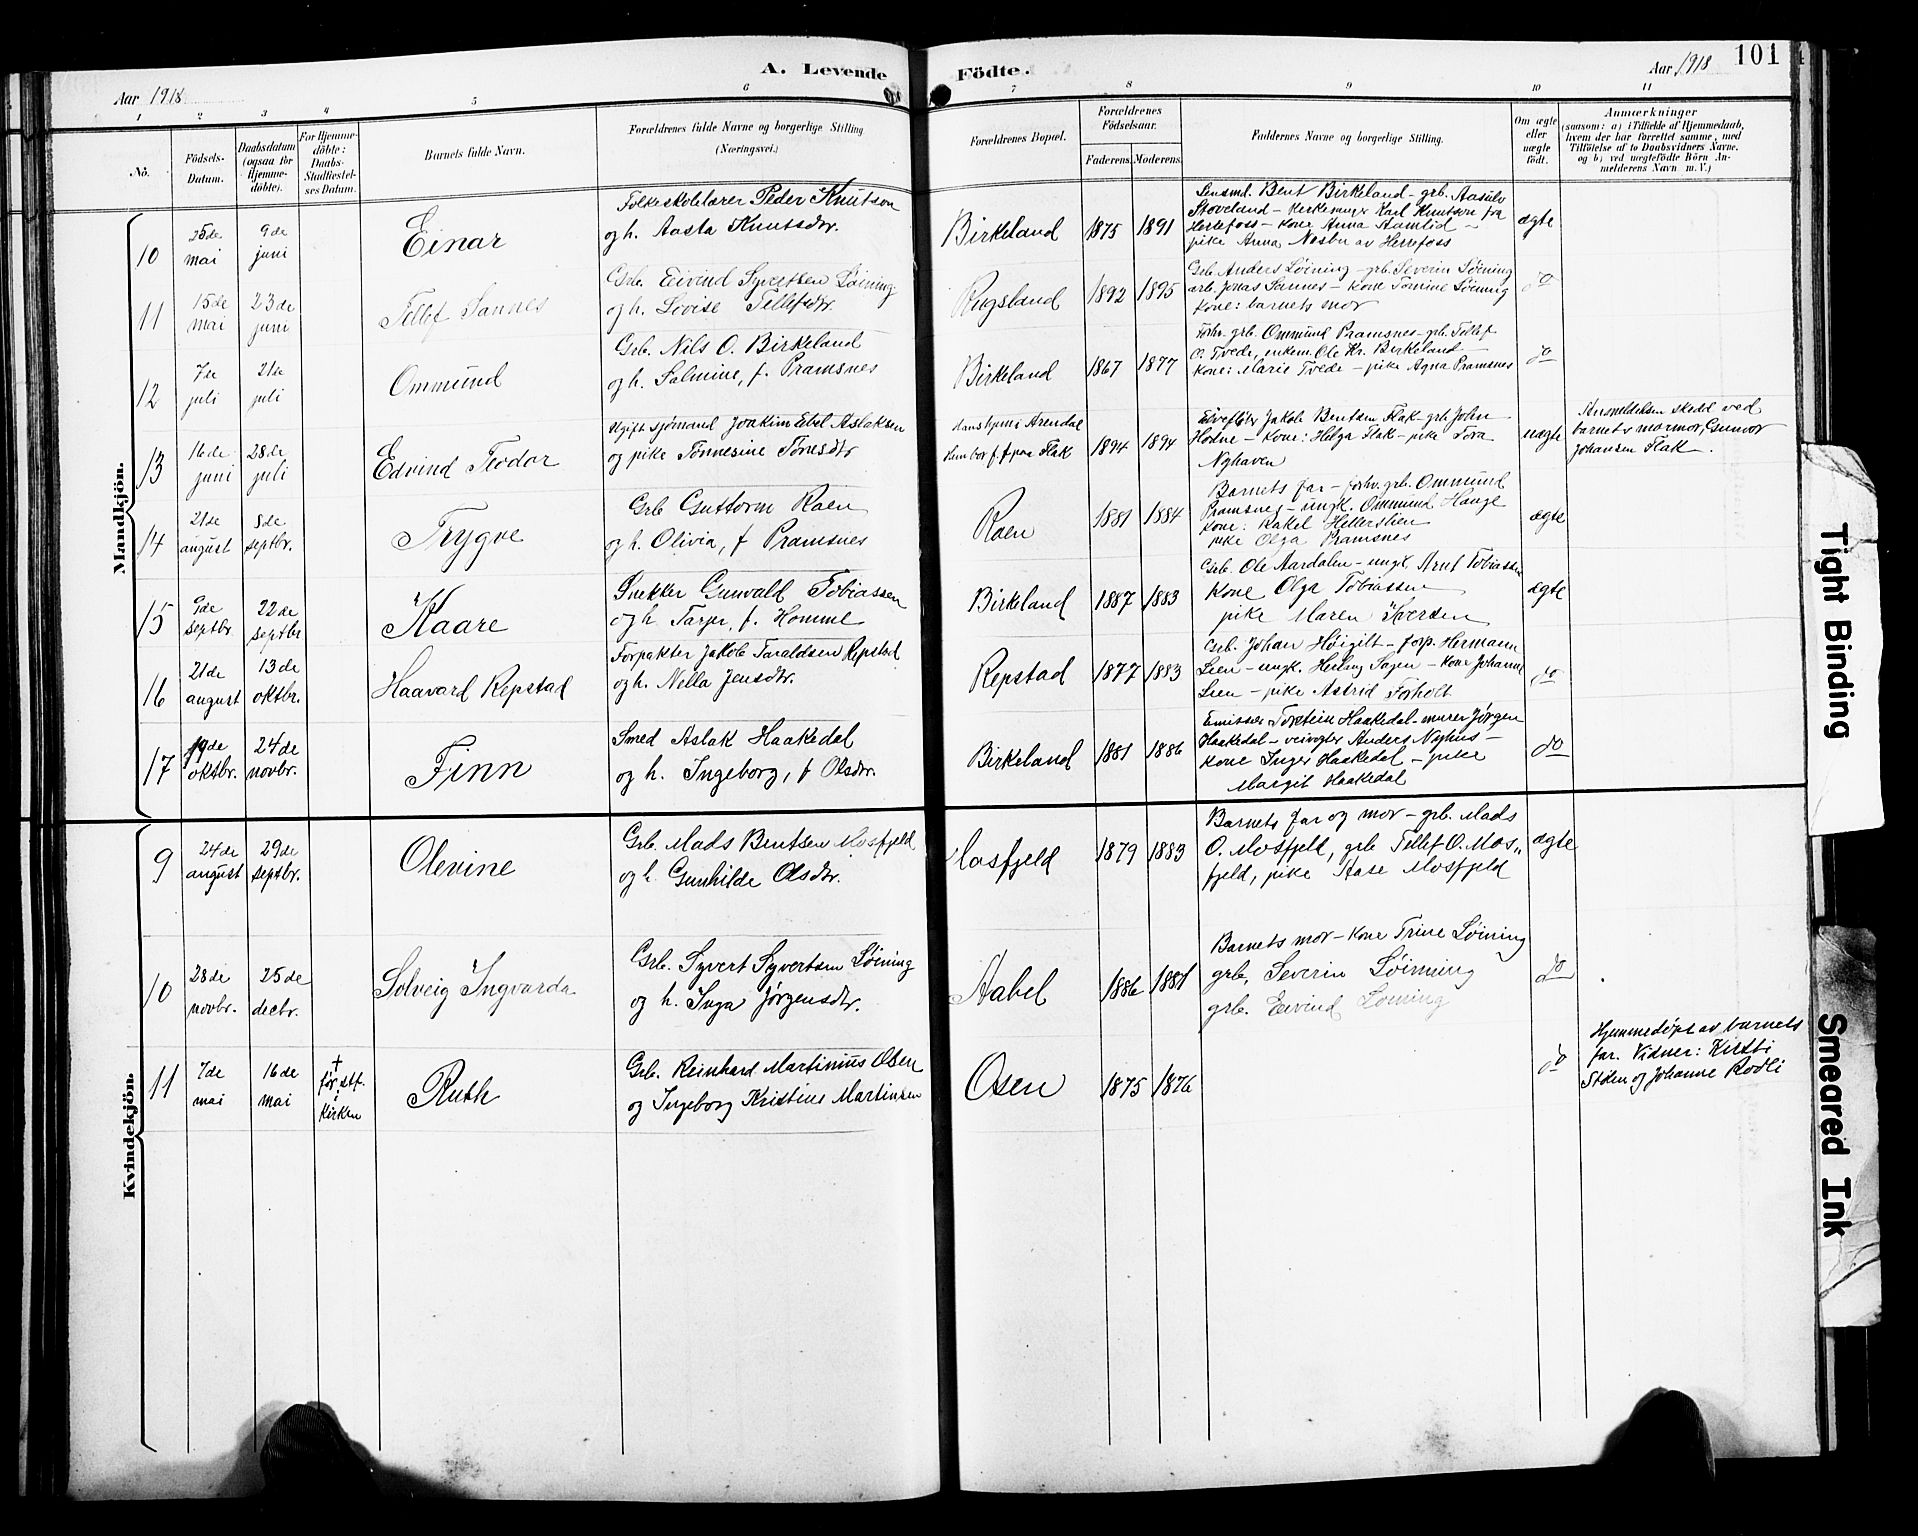 A. Levende Födte.
Aar 1918
Aar 1918
101
1 2 3 4 5 6 7 8 9 10 11
No.
Födsels-
Datum.
Daabsdatum
(ogsaa for
Hjemme-
döbte).
For Hjemme-
döbte:
Daabs-
Stadfæstel-
ses Datum.
Barnets fulde Navn.
Forældrenes fulde Navne og borgerlige Stilling
(Næringsvei.)
Forældrenes Bopæl.
Forældrenes
Födselsaar.
Faderens.
Moderens.
Faddernes Navne og borgerlige Stilling.
Om ægte
eller
uægte
födt.
Anmærkninger
(saasom: a) i Tilfælde af Hjemmedaab,
hvem der har forrettet samme, med
Tilföielse af to Daabsvidners Navne.
og b) ved uægtefödte Börn An-
melderens Navn m. V.)
Mandkjön.
10
25de
mai
9de
juni
Einar
Folkeskolelærer Peder Knutson
og h. Aasta Knutsdtr.
Birkeland
1875
1891
Lensmd. Bent Birkeland - grb. Aasulv
Stoveland - Kirkesanger Karl Knutson fra
Herefoss - Kone Anna Hamlid -
pike Anna Nesbu av Herefoss
ægte
11
15de
mai
23de
juni
Tellef Sannes
Grb. Eivind Syvertsen Løining
og h. Lovise Tellefsdtr.
Rugsland
1892
1895
Grb. Anders Løining - grb. Severin Løining
arb. Jonas Sannes - Kone Tomine Løining
Kone: barnets mor
do
12
7de
juli
21de
juli
Ommund
Grb. Nils O. Birkeland
og h. Salmine, f. Pramsnes
Birkeland
1867
1877
Forhv. grb. Ommund Pramsnes - grb. Tellef
O. Tvede, enkem. Ole Kr. Birkeland -
Kone: Marie Tvede - pike Agna Pramsnes
do
13
16de
juni
28de
juli
Edvind Teodor
Ugift sjømand Joakim Edel Aslaksen
og pike Tønnesine Tønesdtr
Hans hjem i Arendal
Hun bor f. t. paa Flak
1894
1894
Elvefløter Jakob Bentsen Flak - grb. John
Hodne - Kone: Helga Flak - pike Tora
Nyhaven
uægte
Anmeldelsen skedd ved
barnets mormor, Gunvor
Johansen Flak.
14
21de
august
8de
septbr.
Trygve
Grb Guttorm Raen
og h. Olivia, f Pramsnes
Raen
1881
1884
Barnets far - forhv. grb. Ommund
Pramsnes - ungk. Ommund Hauge
Kone: Rakel Hellerslien
pike Olga Pramsnes
ægte
15
9de
septbr.
22de
septbr
Kaare
Snekker Gunvald Tobiassen
og h. Tarjer, f. Homme
Birkeland
1887
1883
Grb. Ole Aardalen - ungk. Arnt Tobiassen
Kone Olga Tobiassen
pike Maren Iversen
ægte
16
21de
august
13de
oktbr.
Haavard Repstad
Forpakter Jakob Taraldsen Repstad
og h. Nella Jensdtr.
Repstad
1877
1883
Grb. Johan Høigilt - forp. Hermann
Lien - ungk. Herlug Sagen - Kone Johanne
Lien - pike Astrid Forholt
do
17
19de
oktbr.
24de
novbr.
Finn
Smed Aslak Haakedal
og h. Ingeborg, f Olsdtr.
Birkeland
1881
1886
Emissær Torstein Haakedal - murer Jørgen
Haakedal - veivogter Anders Nyhus -
Kone Inger Haakedal - pike
Margit Haakedal
do
Kvindekjön.
9
24de
august
29de
septbr.
Olevine
Grb. Mads Bentsen Mosfjeld
og h. Gunhilde Olsdtr.
Mosfjeld
1879
1883
Barnets far og mor - grb. Mads
O. Mosfjeld, grb Tellef O. Mos„
fjeld, pike Aase Mosfjeld
ægte
10
28de
novbr.
25de
decbr.
Solveig Ingvarda
Grb. Syvert Syvertsen Løining
og h. Inga Jørgensdtr.
Aabel
1886
1881
Barnets mor - Kone Trine Løining
grb. Severin Løinning
grb. Eivind Løining
do
11
7de
mai
16de
mai
†
før stf.
i
kirken
Ruth
Grb. Reinhard Martinius Osen
og Ingeborg Kristine Martinsen
Osen
1875
1876
do
Hjemmedøpt av barnets
far. Vidner: Kirsti
Stien og Johanne Rodli
Tight Binding
Smeared Ink